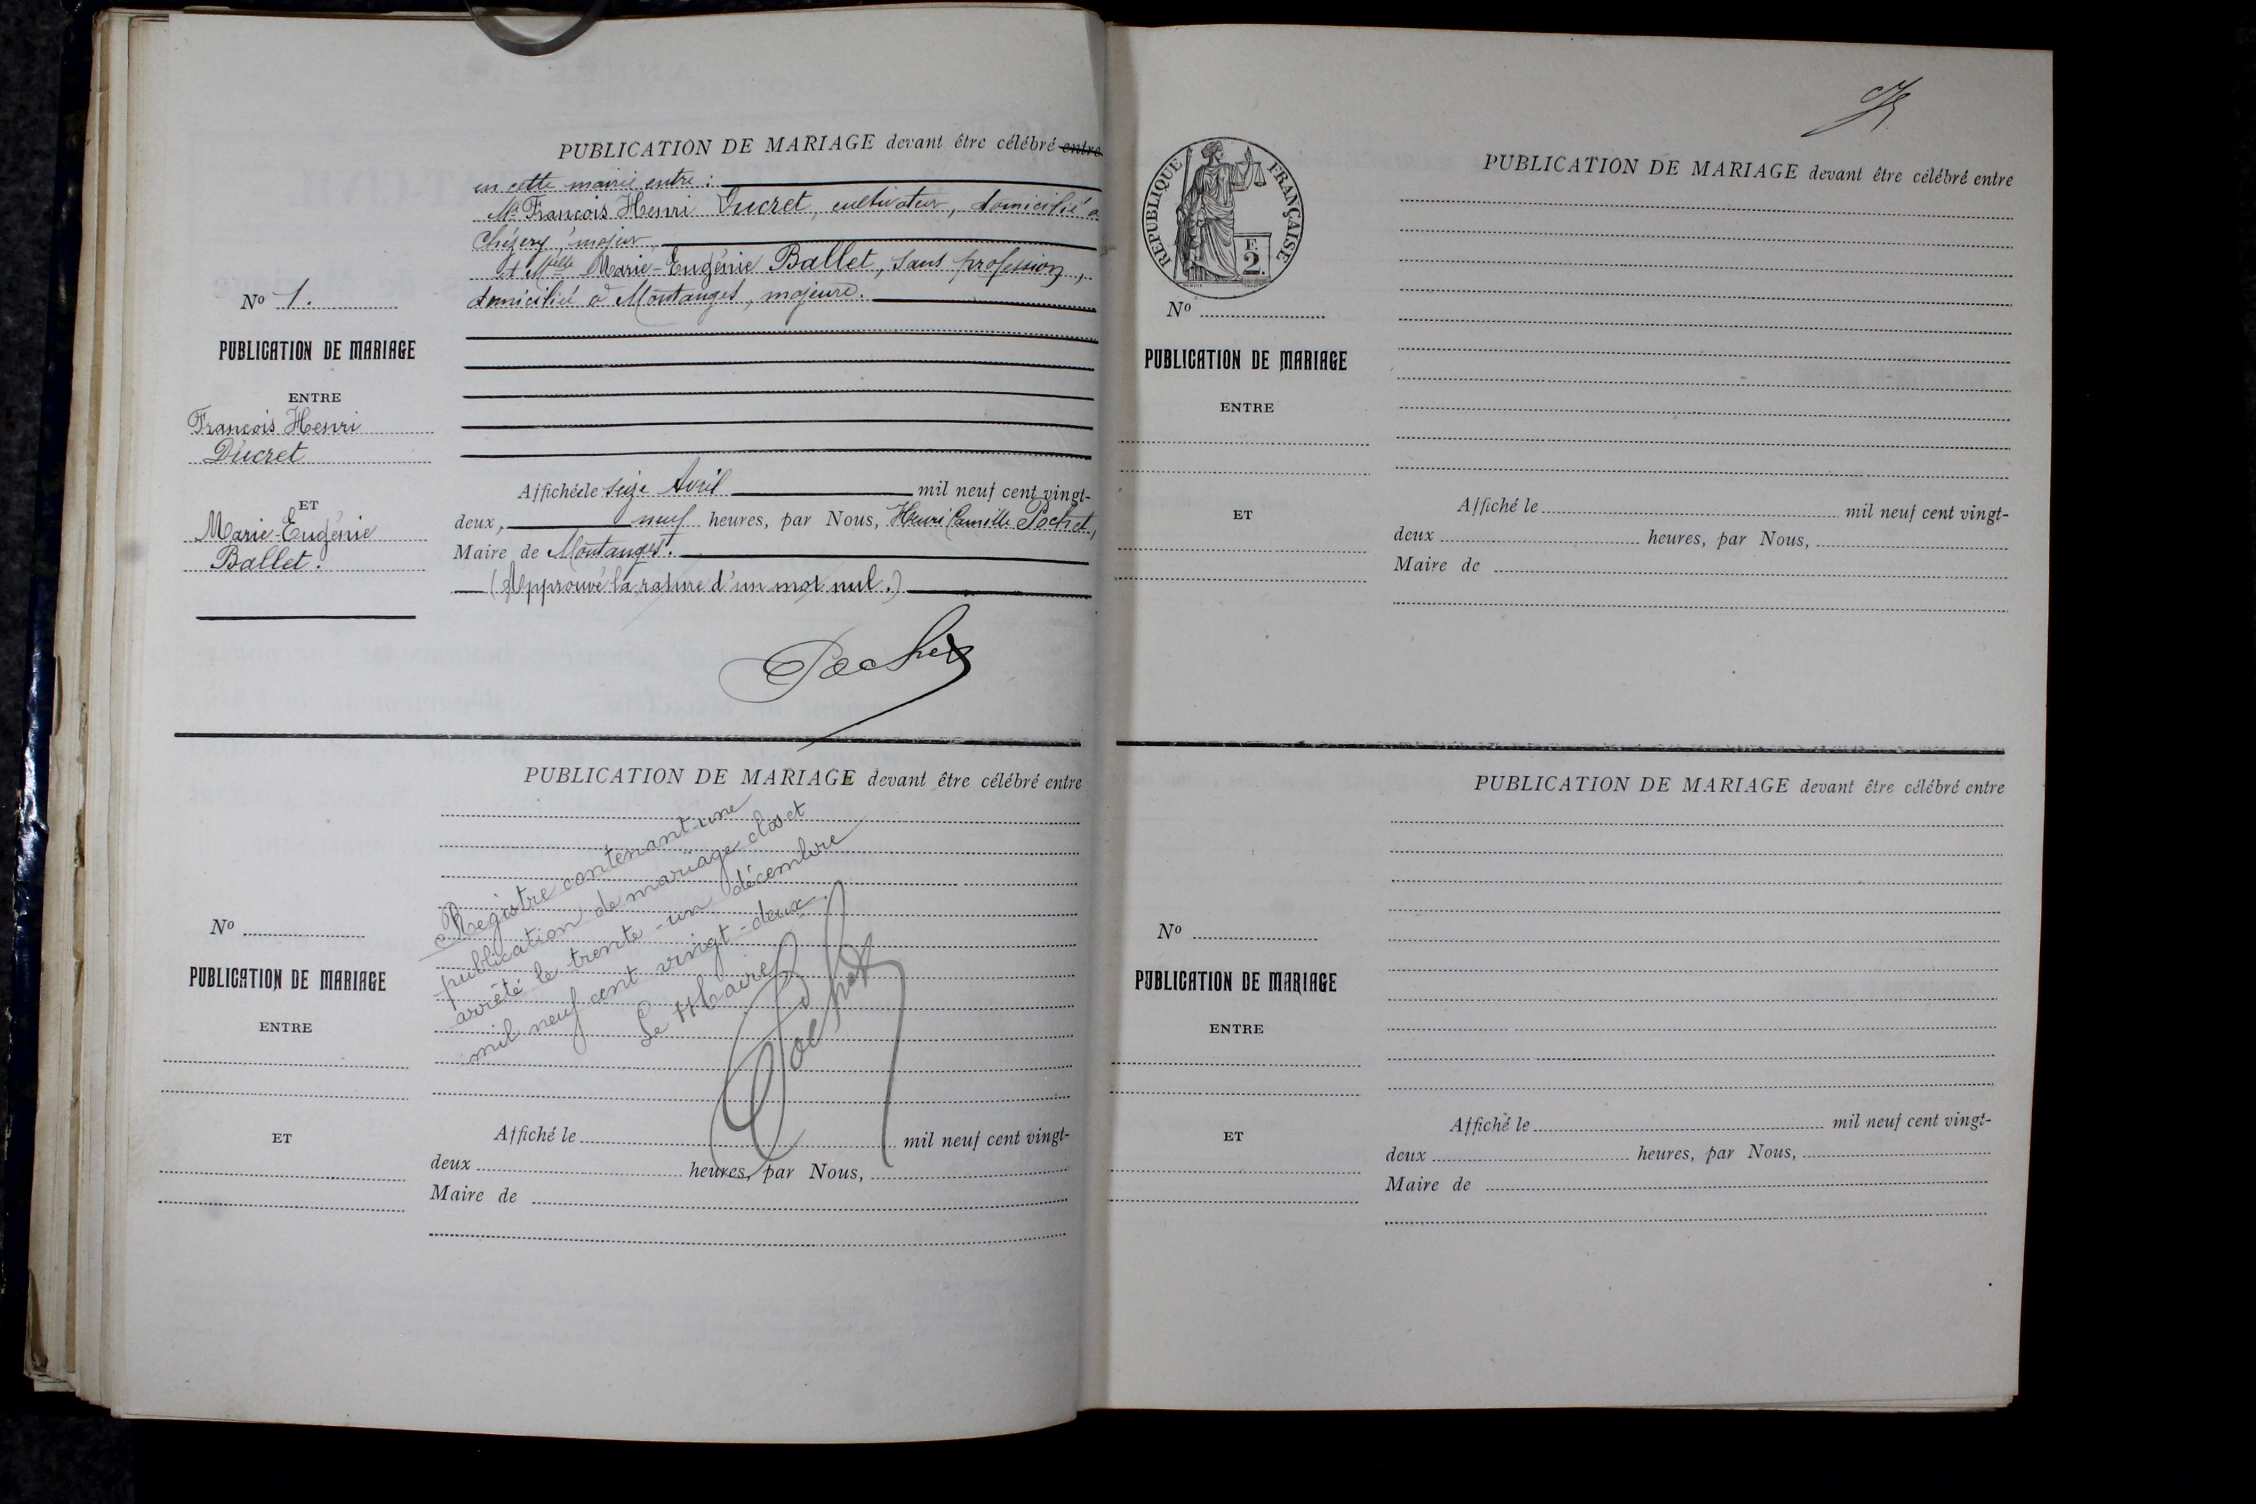 PUBLICATION DE MARIAGE devant être célébré entre
en cette mairie entre :
Mr François Henri Ducret, cultivateur, domicilié à
Chézery, majeur,
et Melle Marie-Eugénie Ballet, sans profession,
domiciliée à Montanges, majeure.
No 1.
PUBLICATION DE MARIAGE
ENTRE
François Henri
Ducret
ET
Marie-Eugénie
Ballet.
Affiché le seize Avril mil neuf cent vingt-
deux, neuf heures, par Nous, Henri Camille Pochet,
Maire de Montanges.
(Approuvé la rature d'un mot nul.)
Pochet
PUBLICATION DE MARIAGE devant être célébré entre
Registre contenant une
publication de mariage clos et
arrêté le trente-un décembre
mil neuf cent vingt-deux.
Le Maire
Pochet
No
PUBLICATION DE MARIAGE
ENTRE
ET
Affiché le mil neuf cent vingt-
deux heures, par Nous,
Maire de
REPUBLIQUE FRANÇAISE
F.
2.
PUBLICATION DE MARIAGE devant être célébré entre
No
PUBLICATION DE MARIAGE
ENTRE
ET
Affiché le mil neuf cent vingt-
deux heures, par Nous,
Maire de
PUBLICATION DE MARIAGE devant être célébré entre
No
PUBLICATION DE MARIAGE
ENTRE
ET
Affiché le mil neuf cent vingt-
deux heures, par Nous,
Maire de